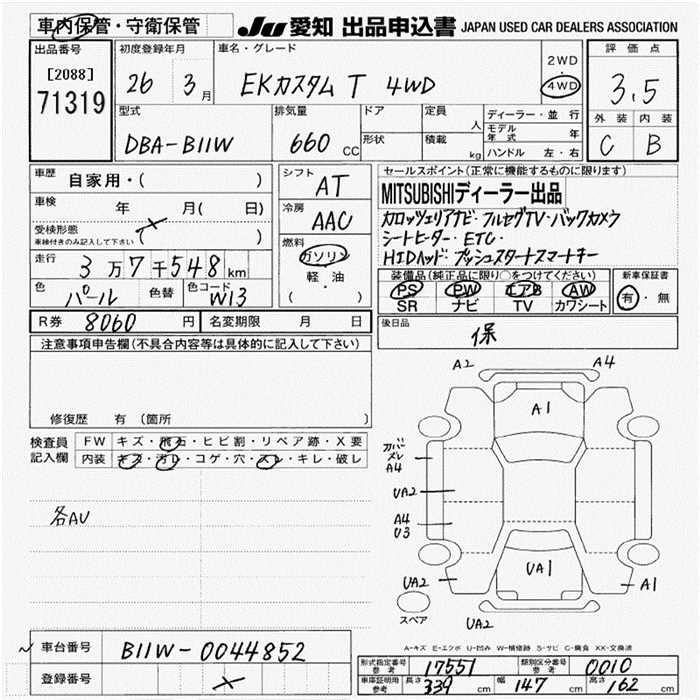 車内保管・守衛保管
JU 愛知 出品申込書 JAPAN USED CAR DEALERS ASSOCIATION
出品番号 初度登録年月 車名・グレード 2WD 4WD 評価点
[2088] 71319 26 3月 EKカスタム T 4WD 3.5
型式 排気量 ドア 定員 人 ディーラー・並行 外装 内装
DBA-B11W 660 CC 形状 積載 kg モデル年式 年 C B
ハンドル 左・右
車歴 自家用・( ) シフト AT セールスポイント(正常に機能するものに限ります)
車検 年 月( 日) 冷房 AAC MITSUBISHIディーラー出品
受検形態 カロッツェリアナビ・フルセグTV・バックカメラ
車検付きのみ記入して下さい ( ) 燃料 シートヒーター・ETC・
走行 3万7千548km ガソリン HIDヘッド・プッシュスタートスマートキー
色 パール 色替 色コード W13 軽・油 ( ) 装備品(純正品に限り○をつけてください) 新車保証書
PS PW エアB AW 有・無
SR ナビ TV カワシート
R券 8060円 名変期限 月 日 後日品 保
注意事項申告欄(不具合内容等は具体的に記入して下さい)
修復歴 有 (箇所 )
検査員記入欄 FW キズ・飛石・ヒビ割・リペア跡・X要
内装 キズ・汚レ・コゲ・穴・スレ・キレ・破レ
各AU
A2 A4
A1
カバーメレ
A4
UA2
A4
U3
UA1
UA2 A1
スペア UA2
A-キズ E-エクボ U-凹み W-補修跡 S-サビ C-腐食 XX-交換済
車台番号 B11W-0044852
登録番号
形式指定番号 参考 17551 類別区分番号 参考 0010
車庫証明用 参考 長さ 339 cm 幅 147 cm 高さ 162 cm